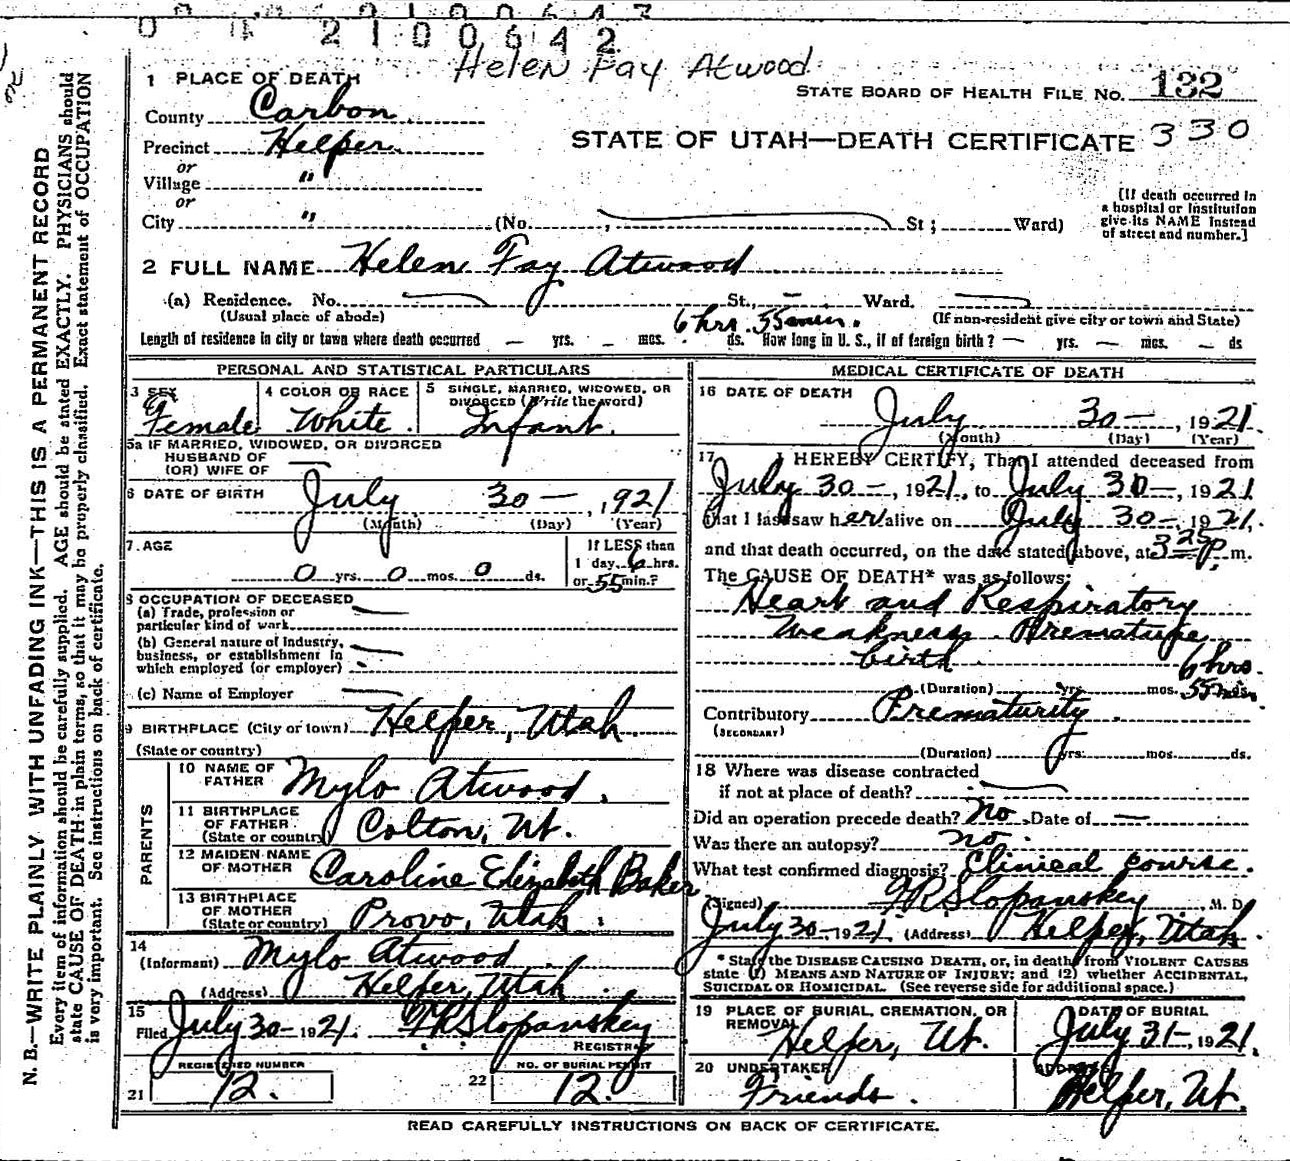 2100642
Helen Fay Atwood
1 PLACE OF DEATH
STATE BOARD OF HEALTH FILE NO. 132
County Carbon
STATE OF UTAH—DEATH CERTIFICATE 330
Precinct Helper
or
Village "
or
City " (No. , St; Ward)
[If death occurred in a hospital or institution give its NAME instead of street and number.]
2 FULL NAME Helen Fay Atwood
(a) Residence. No. St., — Ward.
(Usual place of abode)
(If non-resident give city or town and State)
6 hrs. 55 min.
Length of residence in city or town where death occurred — yrs. — mos. ds. How long in U. S., if of foreign birth? — yrs. — mos. — ds
PERSONAL AND STATISTICAL PARTICULARS
3 SEX Female
4 COLOR OR RACE White.
5 SINGLE, MARRIED, WIDOWED, OR DIVORCED (Write the word) Infant.
5a IF MARRIED, WIDOWED, OR DIVORCED
HUSBAND OF
(OR) WIFE OF —
6 DATE OF BIRTH July 30 —, 1921
(Month) (Day) (Year)
7. AGE 0 yrs. 0 mos. 0 ds.
If LESS than 1 day, 6 hrs. or 55 min.?
8 OCCUPATION OF DECEASED
(a) Trade, profession or particular kind of work —
(b) General nature of industry, business, or establishment in which employed (or employer) —
(c) Name of Employer —
9 BIRTHPLACE (City or town) Helper, Utah.
(State or country)
PARENTS
10 NAME OF FATHER Mylo Atwood.
11 BIRTHPLACE OF FATHER (State or country) Colton, Ut.
12 MAIDEN NAME OF MOTHER Caroline Elizabeth Baker
13 BIRTHPLACE OF MOTHER (State or country) Provo, Utah.
14 (Informant) Mylo Atwood
(Address) Helper, Utah.
15 Filed July 30 — 1921. F R Slopanskey
REGISTRAR
REGISTERED NUMBER
21 12.
NO. OF BURIAL PERMIT
22 12.
MEDICAL CERTIFICATE OF DEATH
16 DATE OF DEATH
July 30 —, 1921.
(Month) (Day) (Year)
17 I HEREBY CERTIFY, That I attended deceased from
July 30 —, 1921, to July 30 —, 1921
that I last saw her alive on July 30 — 1921,
and that death occurred, on the date stated above, at 3 25 P. m.
The CAUSE OF DEATH* was as follows:
Heart and Respiratory
Weakness. Premature
birth 6 hrs.
(Duration) yrs. mos. 55 min.
Contributory Prematurity.
(SECONDARY)
(Duration) yrs. mos. ds.
18 Where was disease contracted
if not at place of death? —
Did an operation precede death? No. Date of —
Was there an autopsy? no.
What test confirmed diagnosis? Clinical course.
(Signed) F R Slopanskey, M. D.
July 30 —, 1921. (Address) Helper, Utah.
* State the DISEASE CAUSING DEATH, or, in death from VIOLENT CAUSES
state (1) MEANS AND NATURE OF INJURY; and (2) whether ACCIDENTAL,
SUICIDAL OR HOMICIDAL. (See reverse side for additional space.)
19 PLACE OF BURIAL, CREMATION, OR REMOVAL Helper, Ut.
DATE OF BURIAL July 31 —, 1921.
20 UNDERTAKER Friends.
ADDRESS Helper, Ut.
READ CAREFULLY INSTRUCTIONS ON BACK OF CERTIFICATE.
N. B.—WRITE PLAINLY WITH UNFADING INK—THIS IS A PERMANENT RECORD
Every item of information should be carefully supplied. AGE should be stated EXACTLY. PHYSICIANS should
state CAUSE OF DEATH in plain terms, so that it may be properly classified. Exact statement of OCCUPATION
is very important. See instructions on back of certificate.